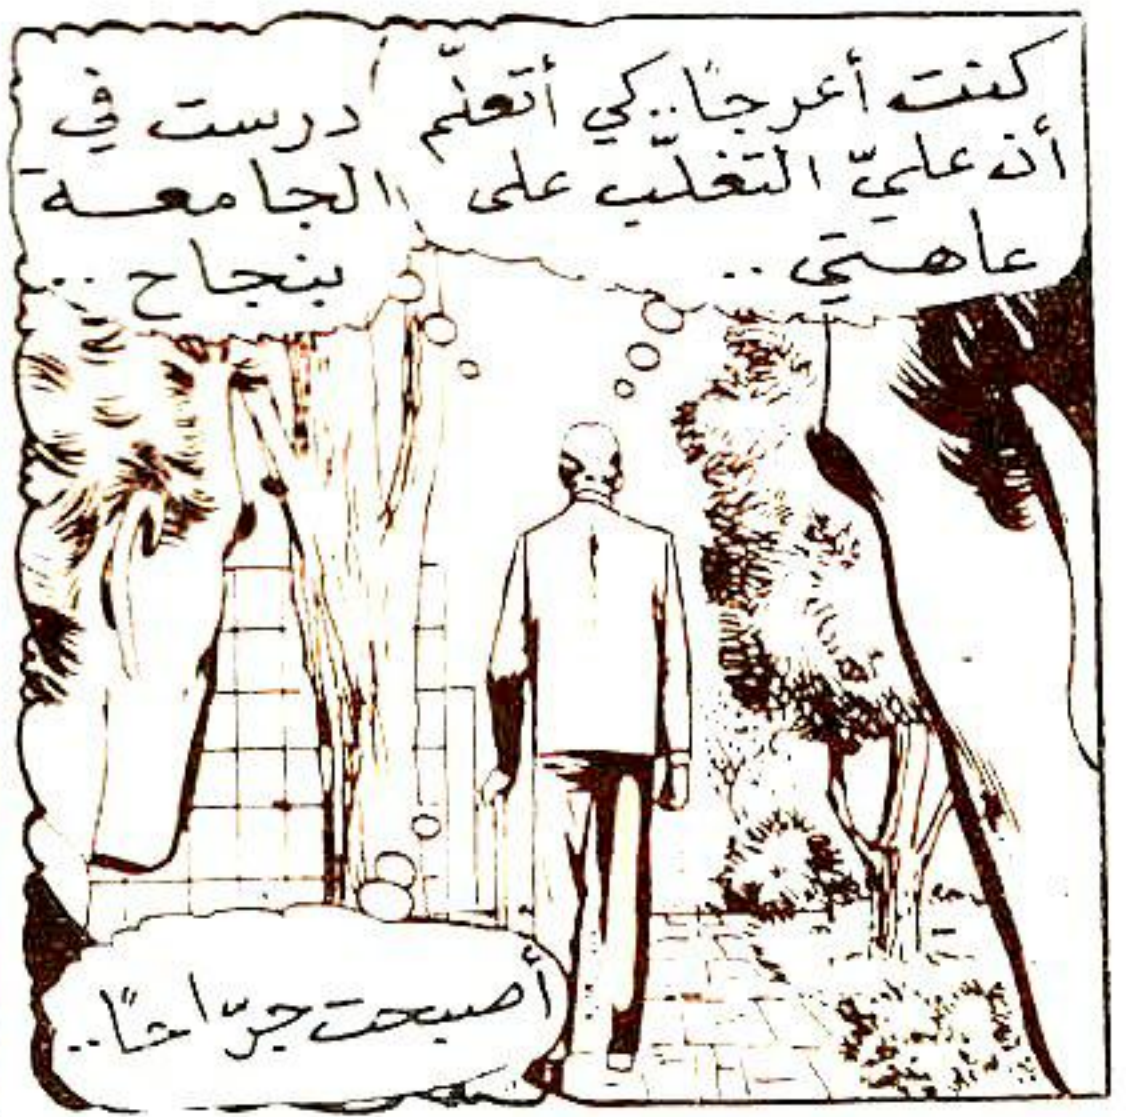 كنت أعرجًا..كي أتعلّم
أن عليّ التغلّب على
عاهتي ..
درست في
الجامعة
بنجاح ..
أصبحت جرّاحًا..